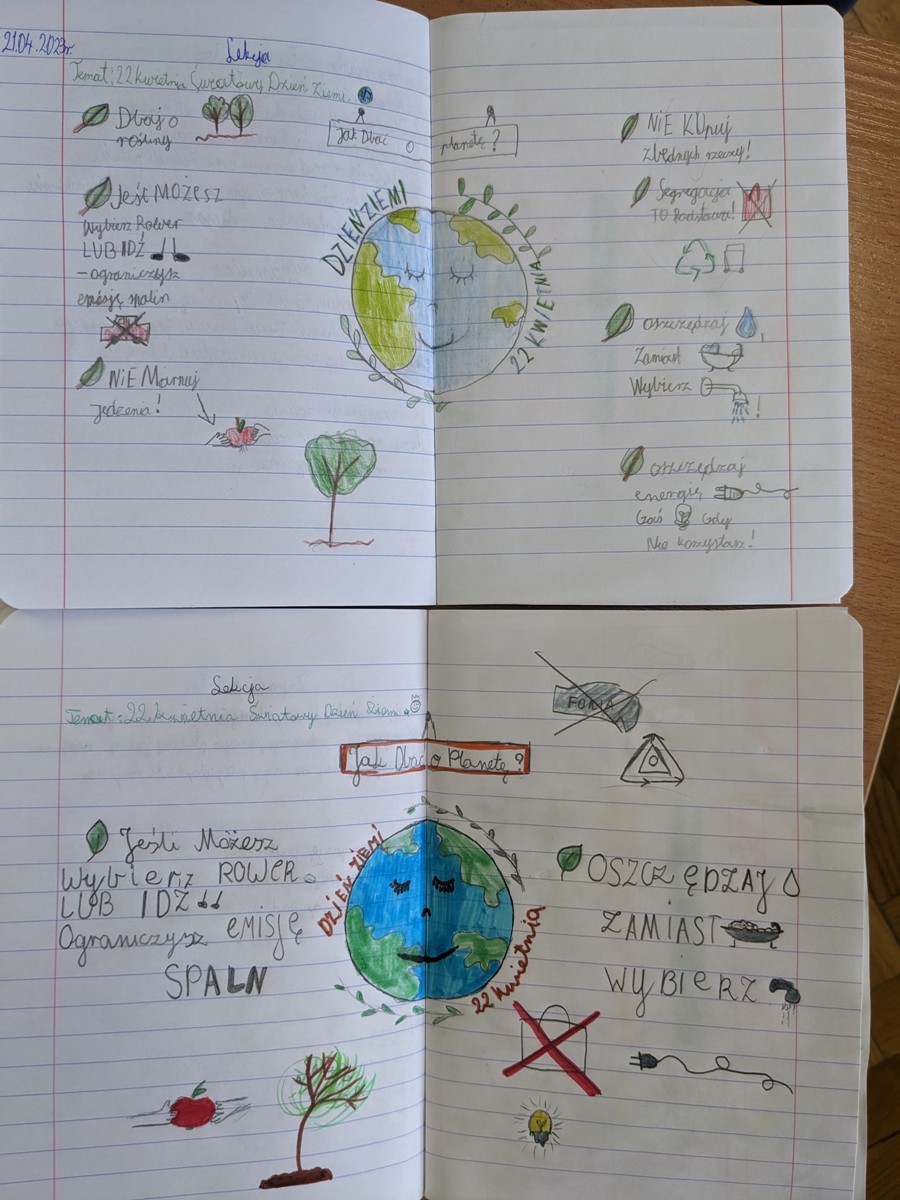 21.04.2023r.
Lekcja
Temat: 22 kwietnia Światowy Dzień Ziemi.
Dbaj o
rośliny
Jak Dbać o planetę?
Jeśt MOŻESZ
Wybierz Rower
LUB IDŹ
- ograniczysz
emisję spalin
NiE Marnuj
jedzenia!
DZIEŃ ZIEMI
22 KWIETNIA
NiE KUpuj
zbędnych rzeczy!
Segregacja
TO Podstawa!
oszczędzaj
Zamiast
Wybierz
!
oszczędzaj
energię
Gaś Gdy
Nie korzystasz!
Lekcja
Temat: 22 kwietnia Światowy Dzień Ziemi.
Jak Dbać o Planetę?
Jeśli Możesz
Wybierz ROWER
LUB IDŹ
Ograniczysz EMISJĘ
SPALN
DZIEŃ ZIEMI
22 kwietnia
OSZCZĘDZAJ
ZAMIAST
WYBIERZ